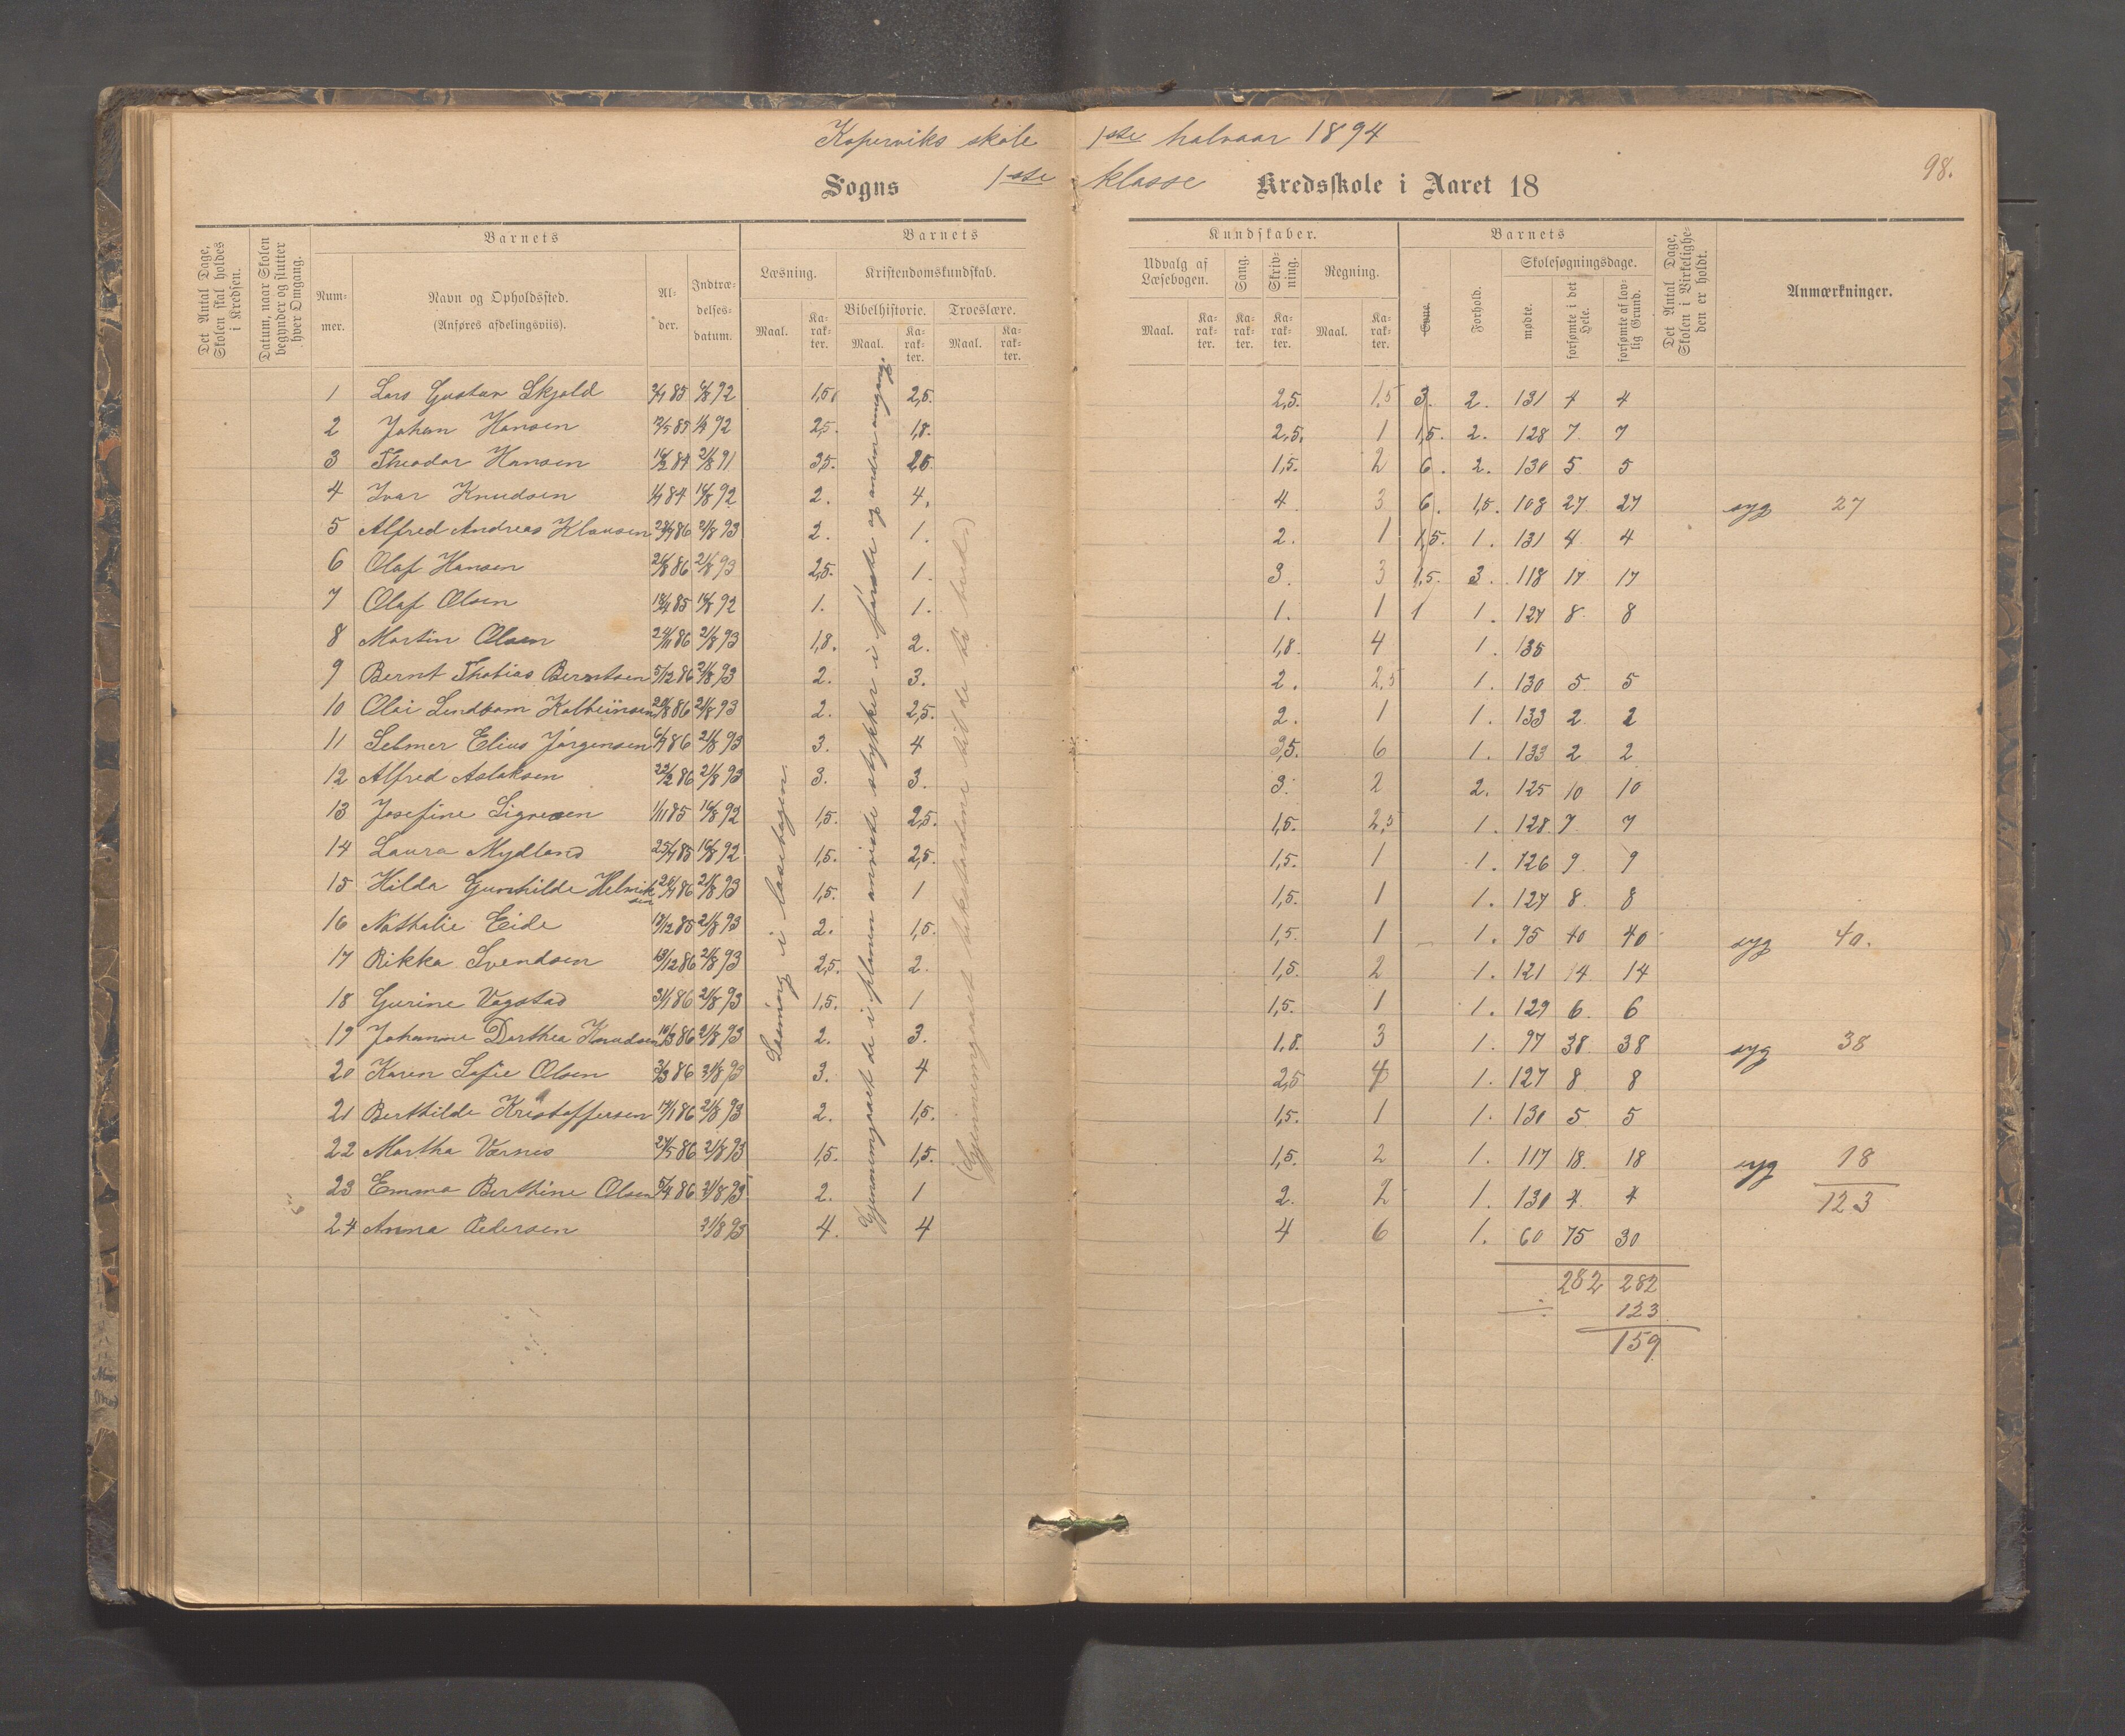 Koperviks skole 1ste halvaar 1894
98.
Sogns 1ste klasse Kredsskole i Aaret 18
Det Antal Dage, Skolen skal holdes i Kredsen.
Datum, naar Skolen begynder og slutter hver Omgang.
Barnets
Nummer.
Navn og Opholdssted.
(Anføres afdelingsviis).
Alder.
Indtrædelsesdatum.
Barnets Kundskaber.
Læsning. Kristendomskundskab.
Bibelhistorie. Troeslære.
Maal. Karakter. Maal. Karakter. Maal. Karakter.
Udvalg af Læsebogen. Sang. Skrivning. Regning.
Maal. Karakter. Karakter. Karakter. Maal. Karakter.
Barnets
Evne. Forhold.
Skolesøgningsdage.
mødte. forsømte i det Hele. forsømte af lovlig Grund.
Det Antal Dage, Skolen i Virkeligheden er holdt.
Anmærkninger.
1 Lars Gustav Skjold 92 1,5 2,5. 2,5. 1,5 3. 2. 131 4 4
2 Johan Hansen 92 2,5. 1,8. 2,5. 1 1,5. 2. 128 7 7
3 Theodor Hansen 21/8 91 3,5. 2,5 1,5. 2 6. 2. 130 5 5
4 Ivar Knudsen 16/8 92 2. 4. 4 3 6. 1,5. 108 27 27 syg 27
5 Alfred Andreas Klausen 21/8 93 2. 1. 2. 1 1,5. 1. 131 4 4
6 Olaf Hansen 26/8 86 21/8 93 2,5. 1. 3. 3 1,5. 3. 118 17 17
7 Olaf Olsen 18/4 85 16/8 92 1. 1. 1. 1 1 1. 127 8 8
8 Martin Olsen 24/11 86 21/8 93 1,8. 2. 1,8. 4 1. 135
9 Bernt Thobias Berntsen 5/12 86 21/8 93 2. 3. 2. 2,5 1. 130 5 5
10 Olai 86 21/8 93 2. 2,5. 2. 1 1. 133 2 2
11 Selmer Elius Jørgensen 86 21/8 93 3. 4 3,5. 6 1. 133 2 2
12 Alfred Aslaksen 22/2 86 21/8 93 3. 3. 3. 2 2. 125 10 10
13 Josefine 1/11 85 16/8 92 1,5. 2,5. 1,5. 2,5 1. 128 7 7
14 Laura Mydland 85 16/8 92 1,5. 2,5. 1,5. 1 1. 126 9 9
15 Hilda Gunhilde Helmiksen 86 21/8 93 1,5. 1 1,5. 1 1. 127 8 8
16 Nathalie Eide 85 21/8 93 2. 1,5. 1,5. 1 1. 95 40 40 syg 40.
17 Rikka Svendsen 86 21/8 93 2,5. 2. 1,5. 2 1. 121 14 14
18 Gurine Vagstad 31/1 86 21/8 93 1,5. 1 1,5. 1 1. 129 6 6
19 Johanne Dorthea Knudsen 86 21/8 93 2. 3. 1,8. 3 1. 97 38 38 syg 38
20 Karen Sofie Olsen 86 21/8 93 3. 4 2,5 4 1. 127 8 8
21 Berthilde Kristoffersen 86 21/8 93 2. 1,5. 1,5. 1 1. 130 5 5
22 Martha Værnes 86 21/8 93 1,5. 1,5. 1,5. 2 1. 117 18 18 syg 18
23 Emma Berthine Olsen 86 21/8 93 2. 1 2. 2 1. 130 4 4 123
24 Anna Pedersen 21/8 93 4. 4 4 6 1. 60 75 30
282 282
÷ 123
159
Læsning i læsebogen.
Gjennemgaaet de i planen anviste stykker i første og anden omgang.
(Gjennemgaaet til de ti bud.)